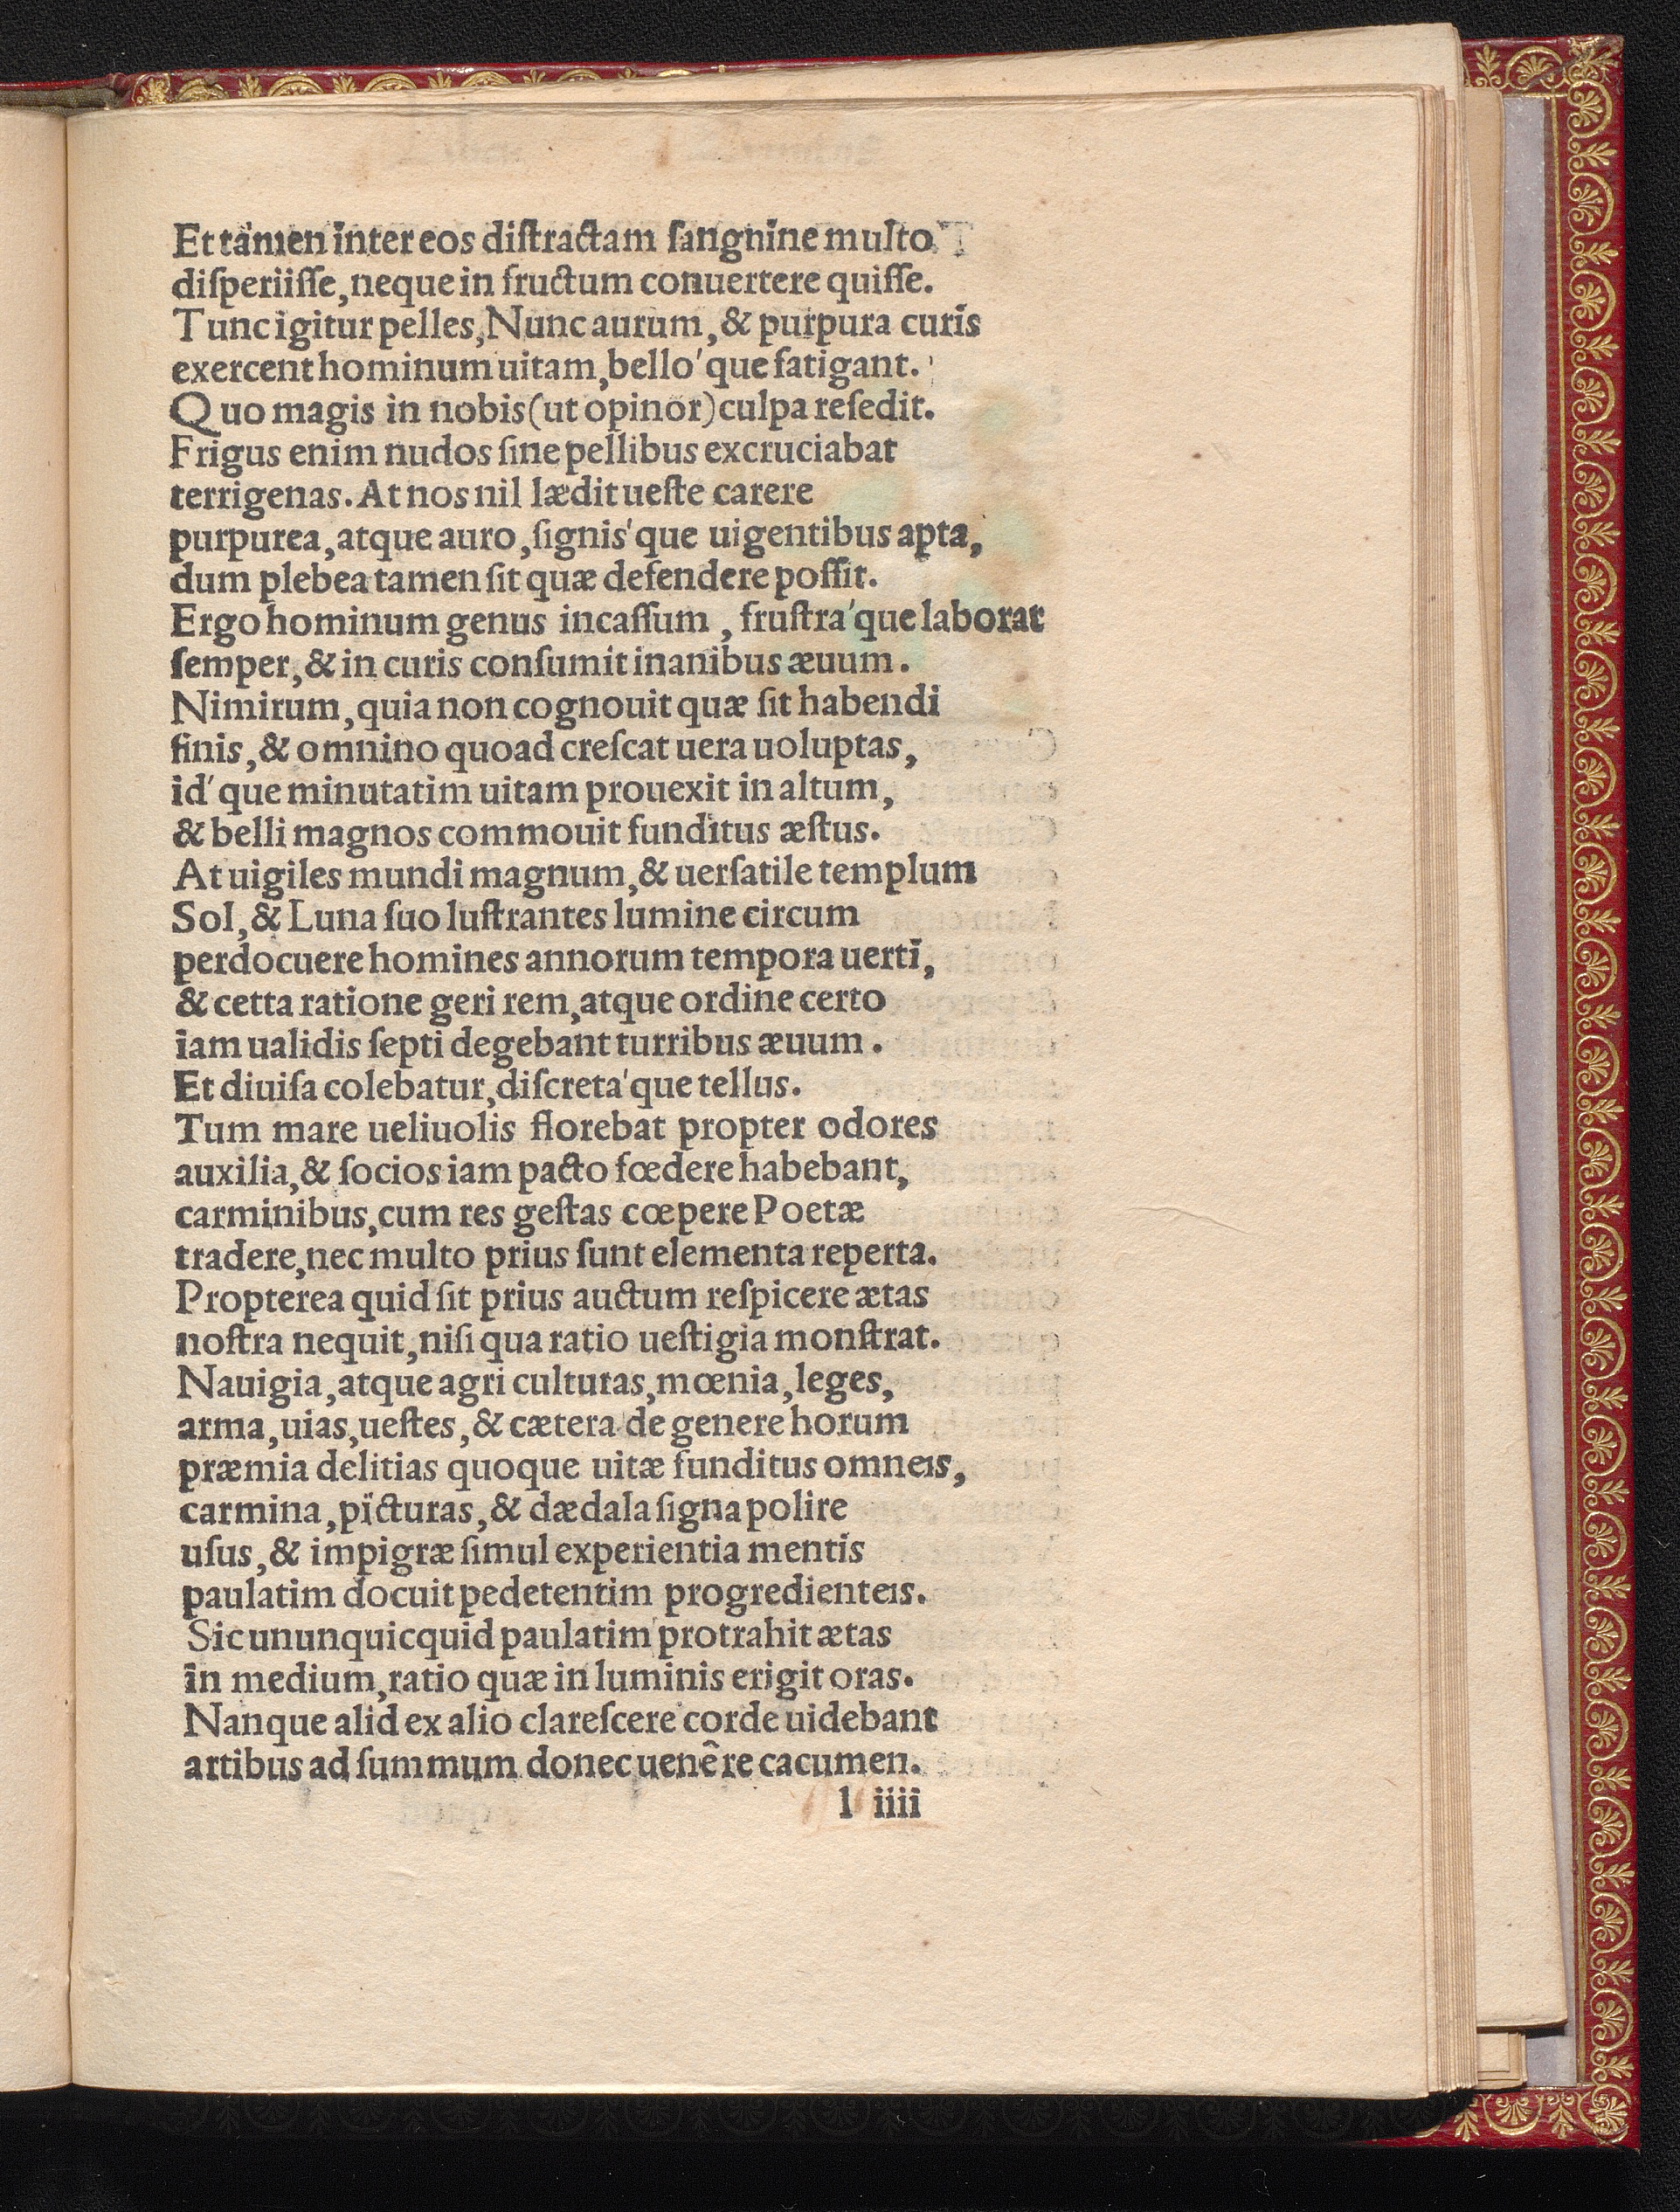 Et tamen inter eos diſtractam ſangnine multo
diſperiiſſe, neque in fructum conuertere quiſſe.
Tunc igitur pelles, Nunc aurum, & purpura curis
exercent hominum uitam, bello' que fatigant.
Quo magis in nobis (ut opinor) culpa reſedit.
Frigus enim nudos ſine pellibus excruciabat
terrigenas. At nos nil lædit ueſte carere
purpurea, atque auro, ſignis' que uigentibus apta,
dum plebea tamen ſit quæ defendere poſſit.
Ergo hominum genus incaſſum, fruſtra' que laborat
ſemper, & in curis conſumit inanibus æuum.
Nimirum, quia non cognouit quæ ſit habendi
finis, & omnino quoad creſcat uera uoluptas,
id' que minutatim uitam prouexit in altum,
& belli magnos commouit funditus æſtus.
At uigiles mundi magnum, & uerſatile templum
Sol, & Luna ſuo luſtrantes lumine circum
perdocuere homines annorum tempora uerti,
& cetta ratione geri rem, atque ordine certo
iam ualidis ſepti degebant turribus æuum.
Et diuiſa colebatur, diſcreta' que tellus.
Tum mare ueliuolis florebat propter odores
auxilia, & ſocios iam pacto fœdere habebant,
carminibus, cum res geſtas cœpere Poetæ
tradere, nec multo prius ſunt elementa reperta.
Propterea quid ſit prius auctum reſpicere ætas
noſtra nequit, niſi qua ratio ueſtigia monſtrat.
Nauigia, atque agri culturas, mœnia, leges,
arma, uias, ueſtes, & cætera de genere horum
præmia delitias quoque uitæ funditus omneis,
carmina, picturas, & dædala ſigna polire
uſus, & impigræ ſimul experientia mentis
paulatim docuit pedetentim progredienteis.
Sic ununquicquid paulatim protrahit ætas
in medium, ratio quæ in luminis erigit oras.
Nanque alid ex alio clareſcere corde uidebant
artibus ad ſummum donec uenêre cacumen.
l iiii